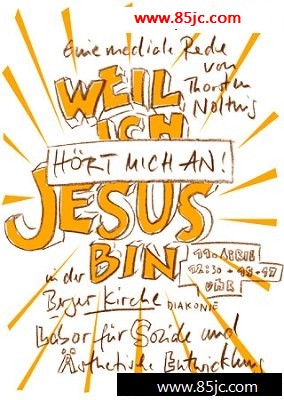 www.85jc.com
Eine mediale Rede
von
Thorsten
Nolting
WEIL
ICH
HÖRT MICH AN!
JESUS
BIN
11. APRIL
12:30 + 13:17
UHR
in der
Berger Kirche DIAKONIE
Labor für Soziale und
Ästhetische Entwicklung
www.85jc.com